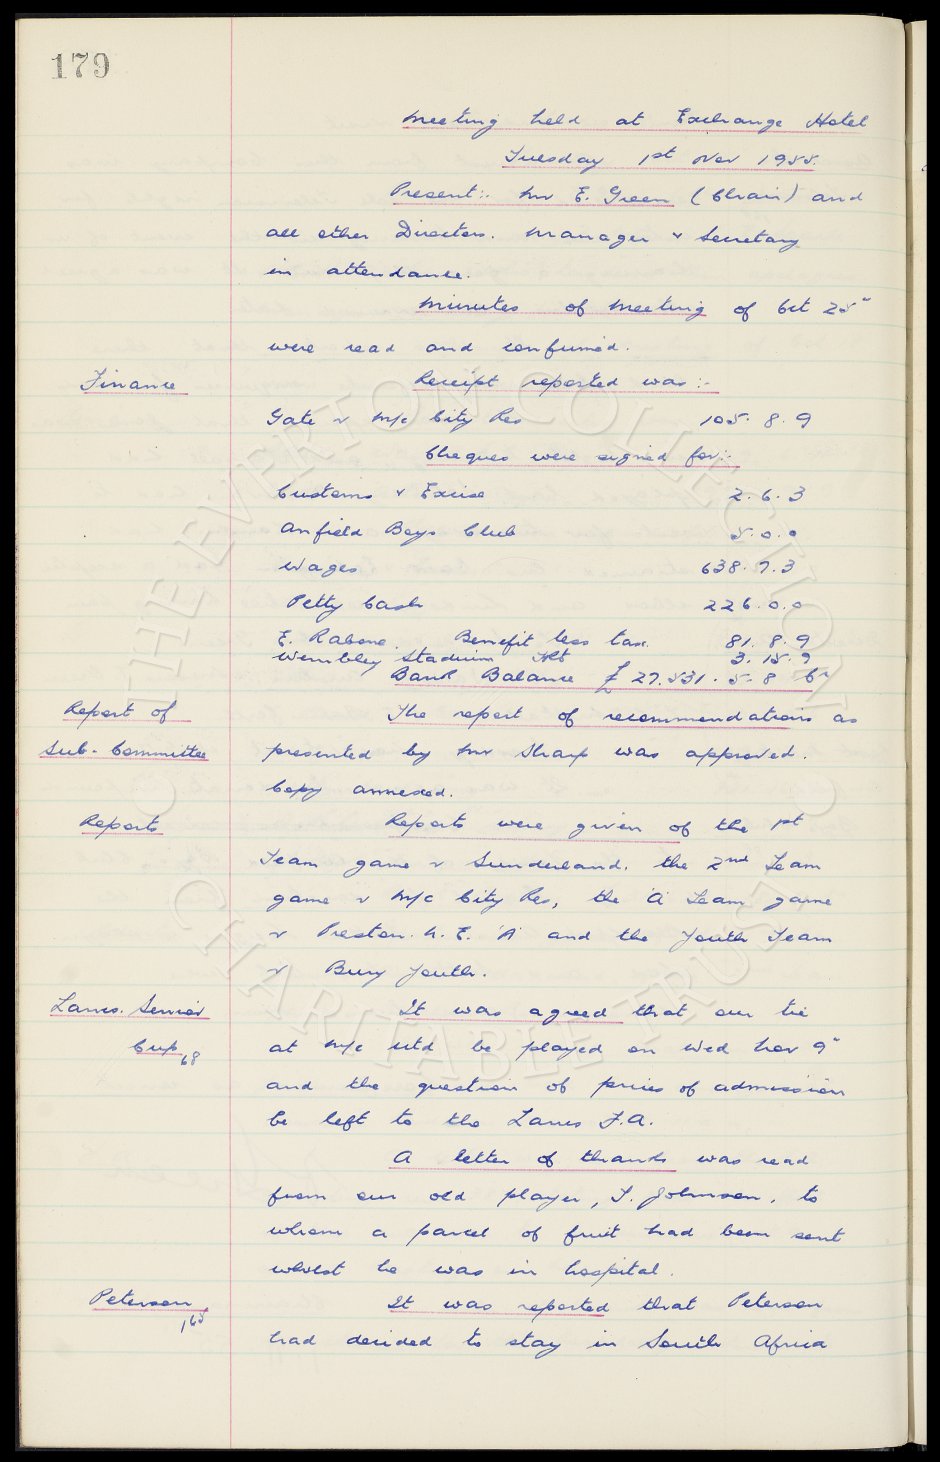 179
Meeting held at Exchange Hotel
Tuesday 1st Nov 1955.
Present:- Mr E. Green (Chair) and
all other Directors. Manager & Secretary
in attendance.
Minutes of Meeting of Oct 25"
were read and confirmed.
Finance
Receipt reported was:-
Gate v M/c City Res 105. 8. 9
Cheques were signed for:-
Customs & Excise 2. 6. 3
Anfield Boys Club 5. 0. 0
Wages 638. 7. 3
Petty Cash 226. 0. 0
E. Rabone. Benefit less tax. 81. 8. 9
Wembley Stadium 3. 15. 9
Bank Balance £27.531. 5. 8 Cr
Report of
Sub-Committee
The report of recommendations as
presented by Mr Sharp was approved.
Copy annexed.
Reports
Reports were given of the 1st
Team game v Sunderland, the 2nd Team
game v M/c City Res, the 'A' Team game
v Preston. N. E. 'A' and the Youth Team
v Bury Youth.
Lancs. Senior
Cup 68
It was agreed that our tie
at M/c Utd be played on Wed Nov 9"
and the question of prices of admission
be left to the Lancs F.A.
A letter of thanks was read
from our old player, T. Johnson, to
whom a parcel of fruit had been sent
whilst he was in hospital.
Peterson 165
It was reported that Peterson
had decided to stay in South Africa
THE EVERTON COLLECTION
CHARITABLE TRUST